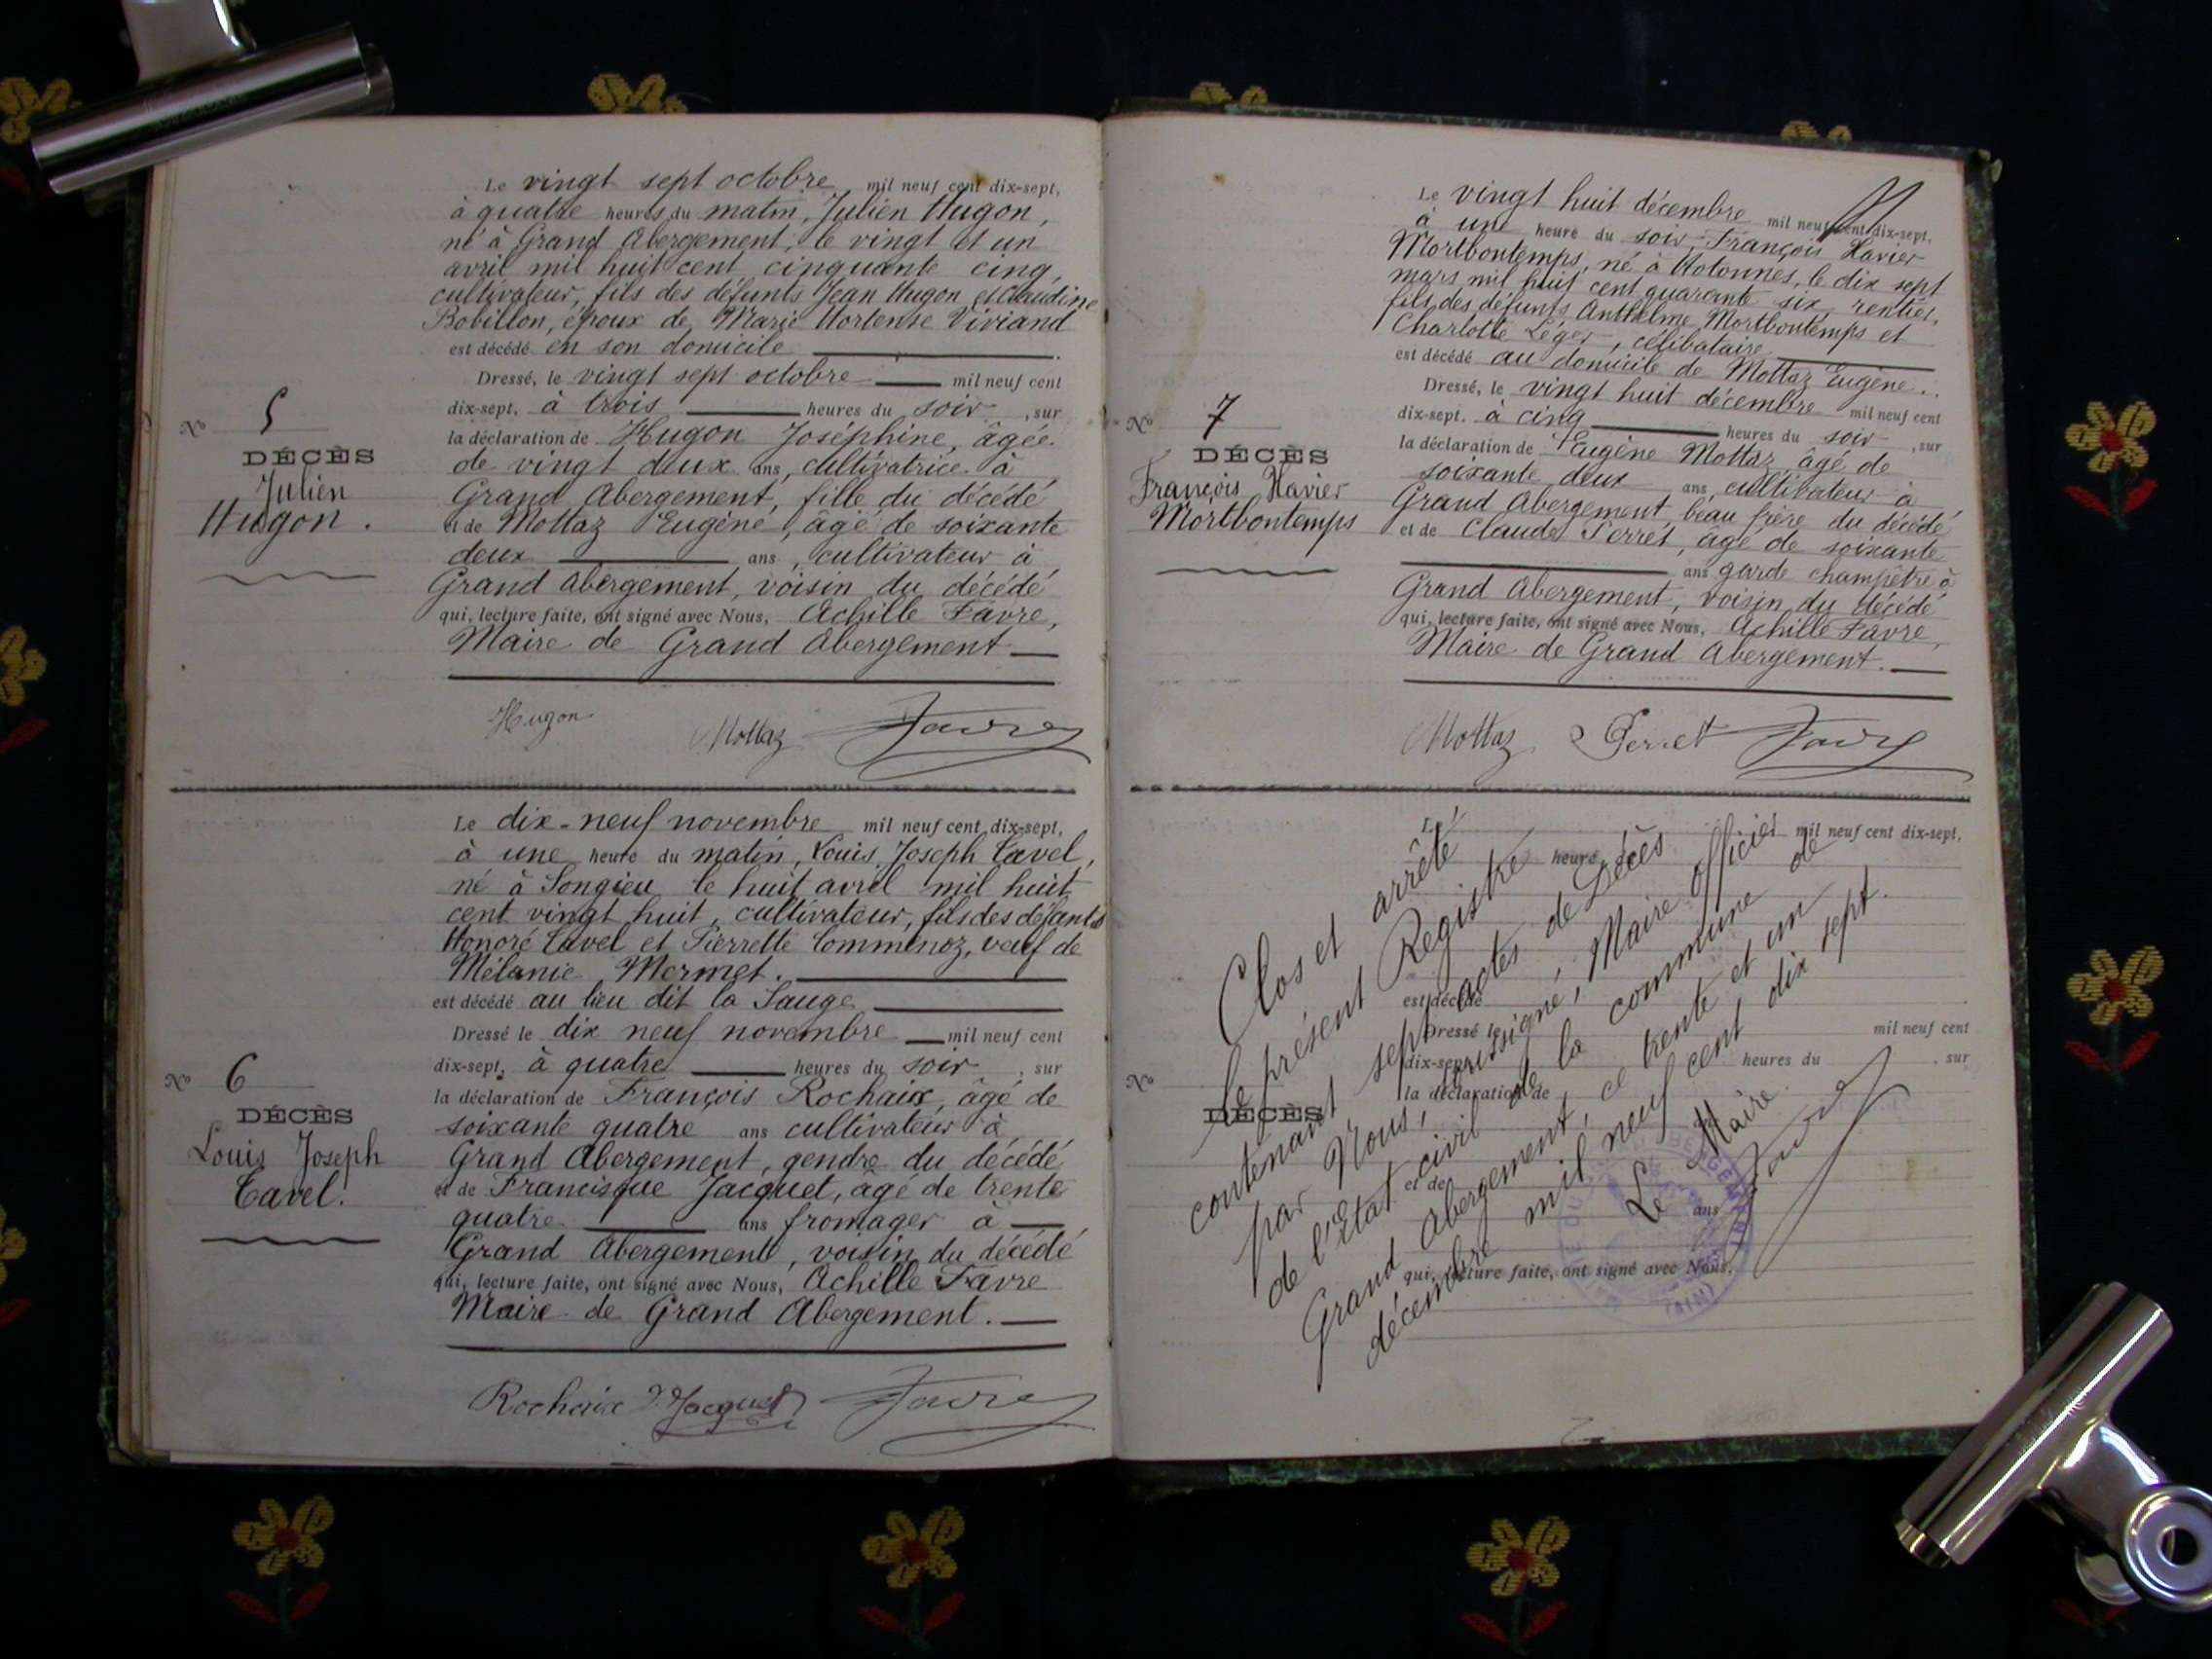 Le vingt sept octobre mil neuf cent dix-sept,
à quatre heures du matin, Julien Hugon,
né à Grand Abergement, le vingt et un
avril mil huit cent cinquante cinq,
cultivateur, fils des défunts Jean Hugon et Claudine
Bobillon, époux de Marie Hortense Viviand
est décédé en son domicile
Dressé, le vingt sept octobre mil neuf cent
dix-sept, à trois heures du soir, sur
la déclaration de Hugon Joséphine, âgée
de vingt deux ans, cultivatrice à
Grand Abergement, fille du décédé
et de Mottaz Eugène, âgé de soixante
deux ans, cultivateur à
Grand Abergement, voisin du décédé
qui, lecture faite, ont signé avec Nous, Achille Favre,
Maire de Grand Abergement
Hugon Mottaz Favre
No 5
DÉCÈS
Julien
Hugon.
Le dix-neuf novembre mil neuf cent dix-sept,
à une heure du matin, Louis Joseph Tavel,
né à Songieu le huit avril mil huit
cent vingt huit, cultivateur, fils des défunts
Honoré Tavel et Pierrette Commenoz, veuf de
Mélanie Mermet.
est décédé au lieu dit la Sauge
Dressé le dix neuf novembre mil neuf cent
dix-sept, à quatre heures du soir, sur
la déclaration de François Rochaix, âgé de
soixante quatre ans cultivateur à
Grand Abergement, gendre du décédé
et de Francisque Jacquet, âgé de trente
quatre ans fromager à
Grand Abergement, voisin du décédé
qui, lecture faite, ont signé avec Nous, Achille Favre
Maire de Grand Abergement.
Rochaix Jacquet Favre
No 6
DÉCÈS
Louis Joseph
Tavel.
Le vingt huit décembre mil neuf cent dix-sept,
à une heure du soir, François Xavier
Mortbontemps, né à Hotonnes, le dix sept
mars mil huit cent quarante six, rentier,
fils des défunts Anthelme Mortbontemps et
Charlotte Léger, célibataire
est décédé au domicile de Mottaz Eugène.
Dressé, le vingt huit décembre mil neuf cent
dix-sept. à cinq heures du soir, sur
la déclaration de Eugène Mottaz âgé de
soixante deux ans, cultivateur à
Grand Abergement beau frère du décédé
et de Claude Perret, âgé de soixante
ans garde champêtre à
Grand Abergement, voisin du décédé
qui, lecture faite, ont signé avec Nous, Achille Favre,
Maire de Grand Abergement.
Mottaz Perret Favre
No 7
DÉCÈS
François Xavier
Mortbontemps
Le mil neuf cent dix-sept,
heure
est décédé
Dressé le mil neuf cent
dix-sept heures du , sur
la déclaration de
et de
ans
qui, lecture faite, ont signé avec Nous,
No
DÉCÈS
Clos et arrêté
le présent Registre
contenant sept actes de Décès
par Nous, soussigné, Maire officier
de l'Etat civil de la commune de
Grand Abergement, ce trente et un
décembre mil neuf cent dix sept.
Le Maire.
Favre
(AIN)